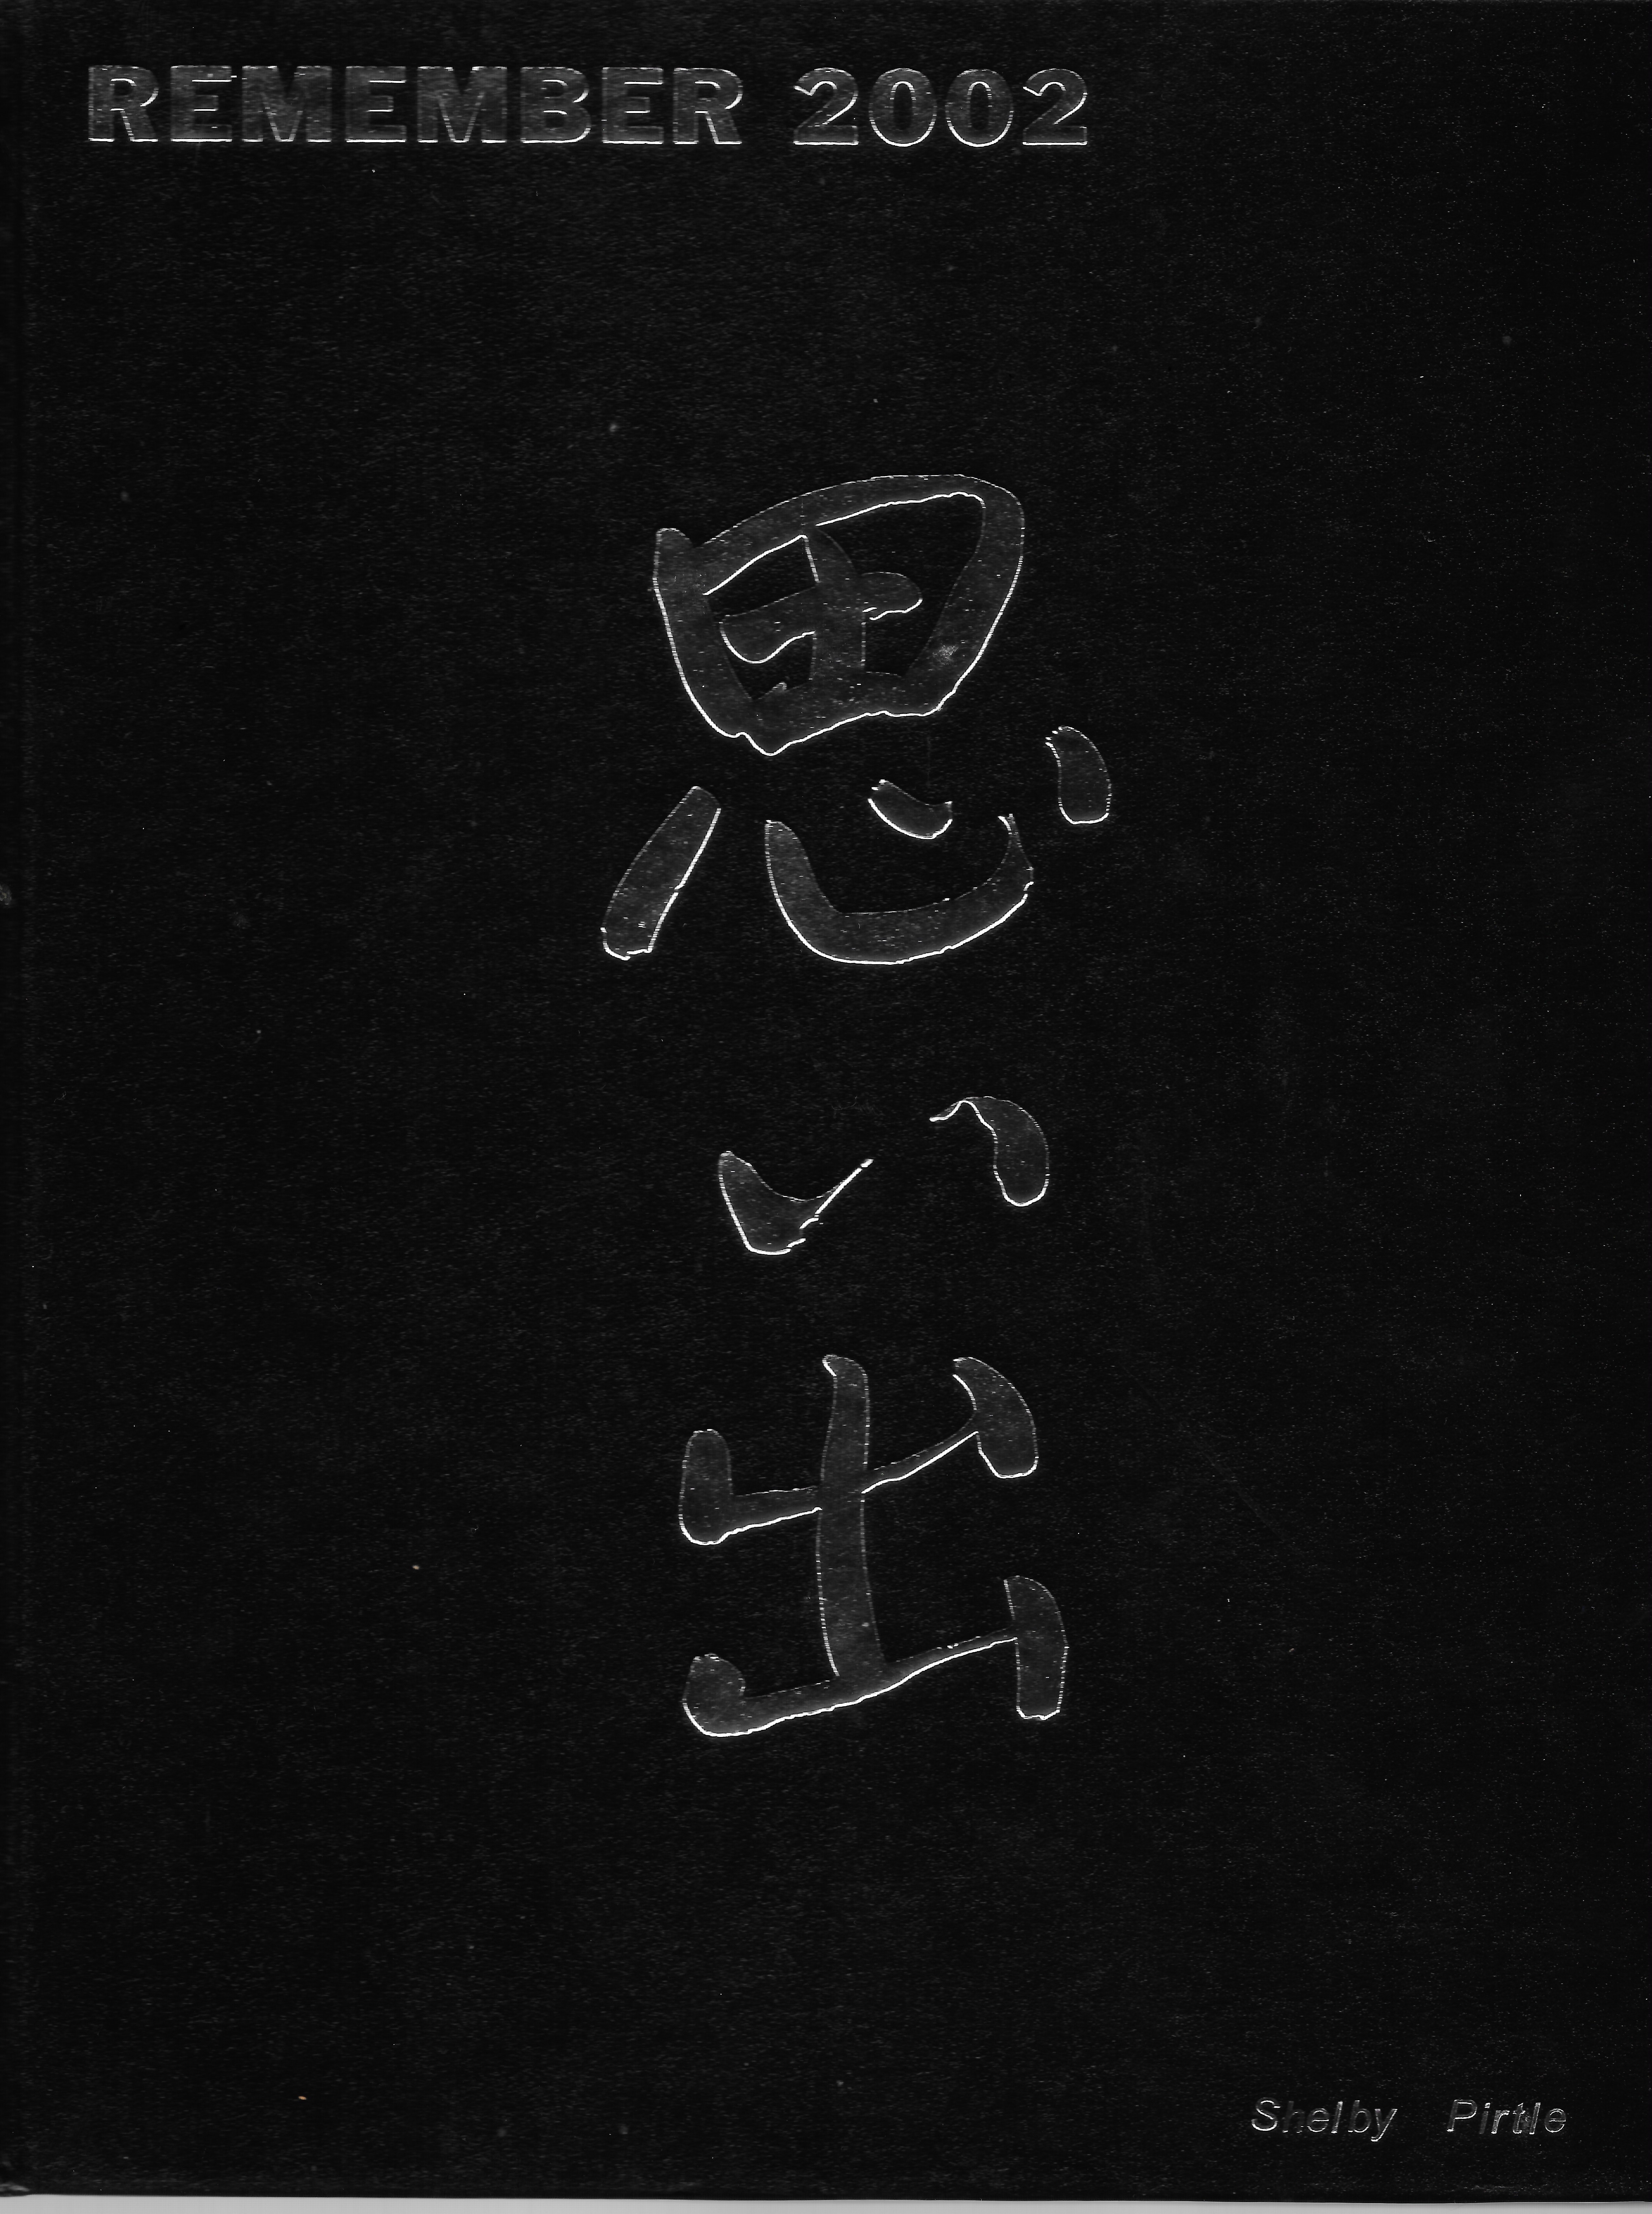 REMEMBER 2002
思い出
Shelby Pirtle